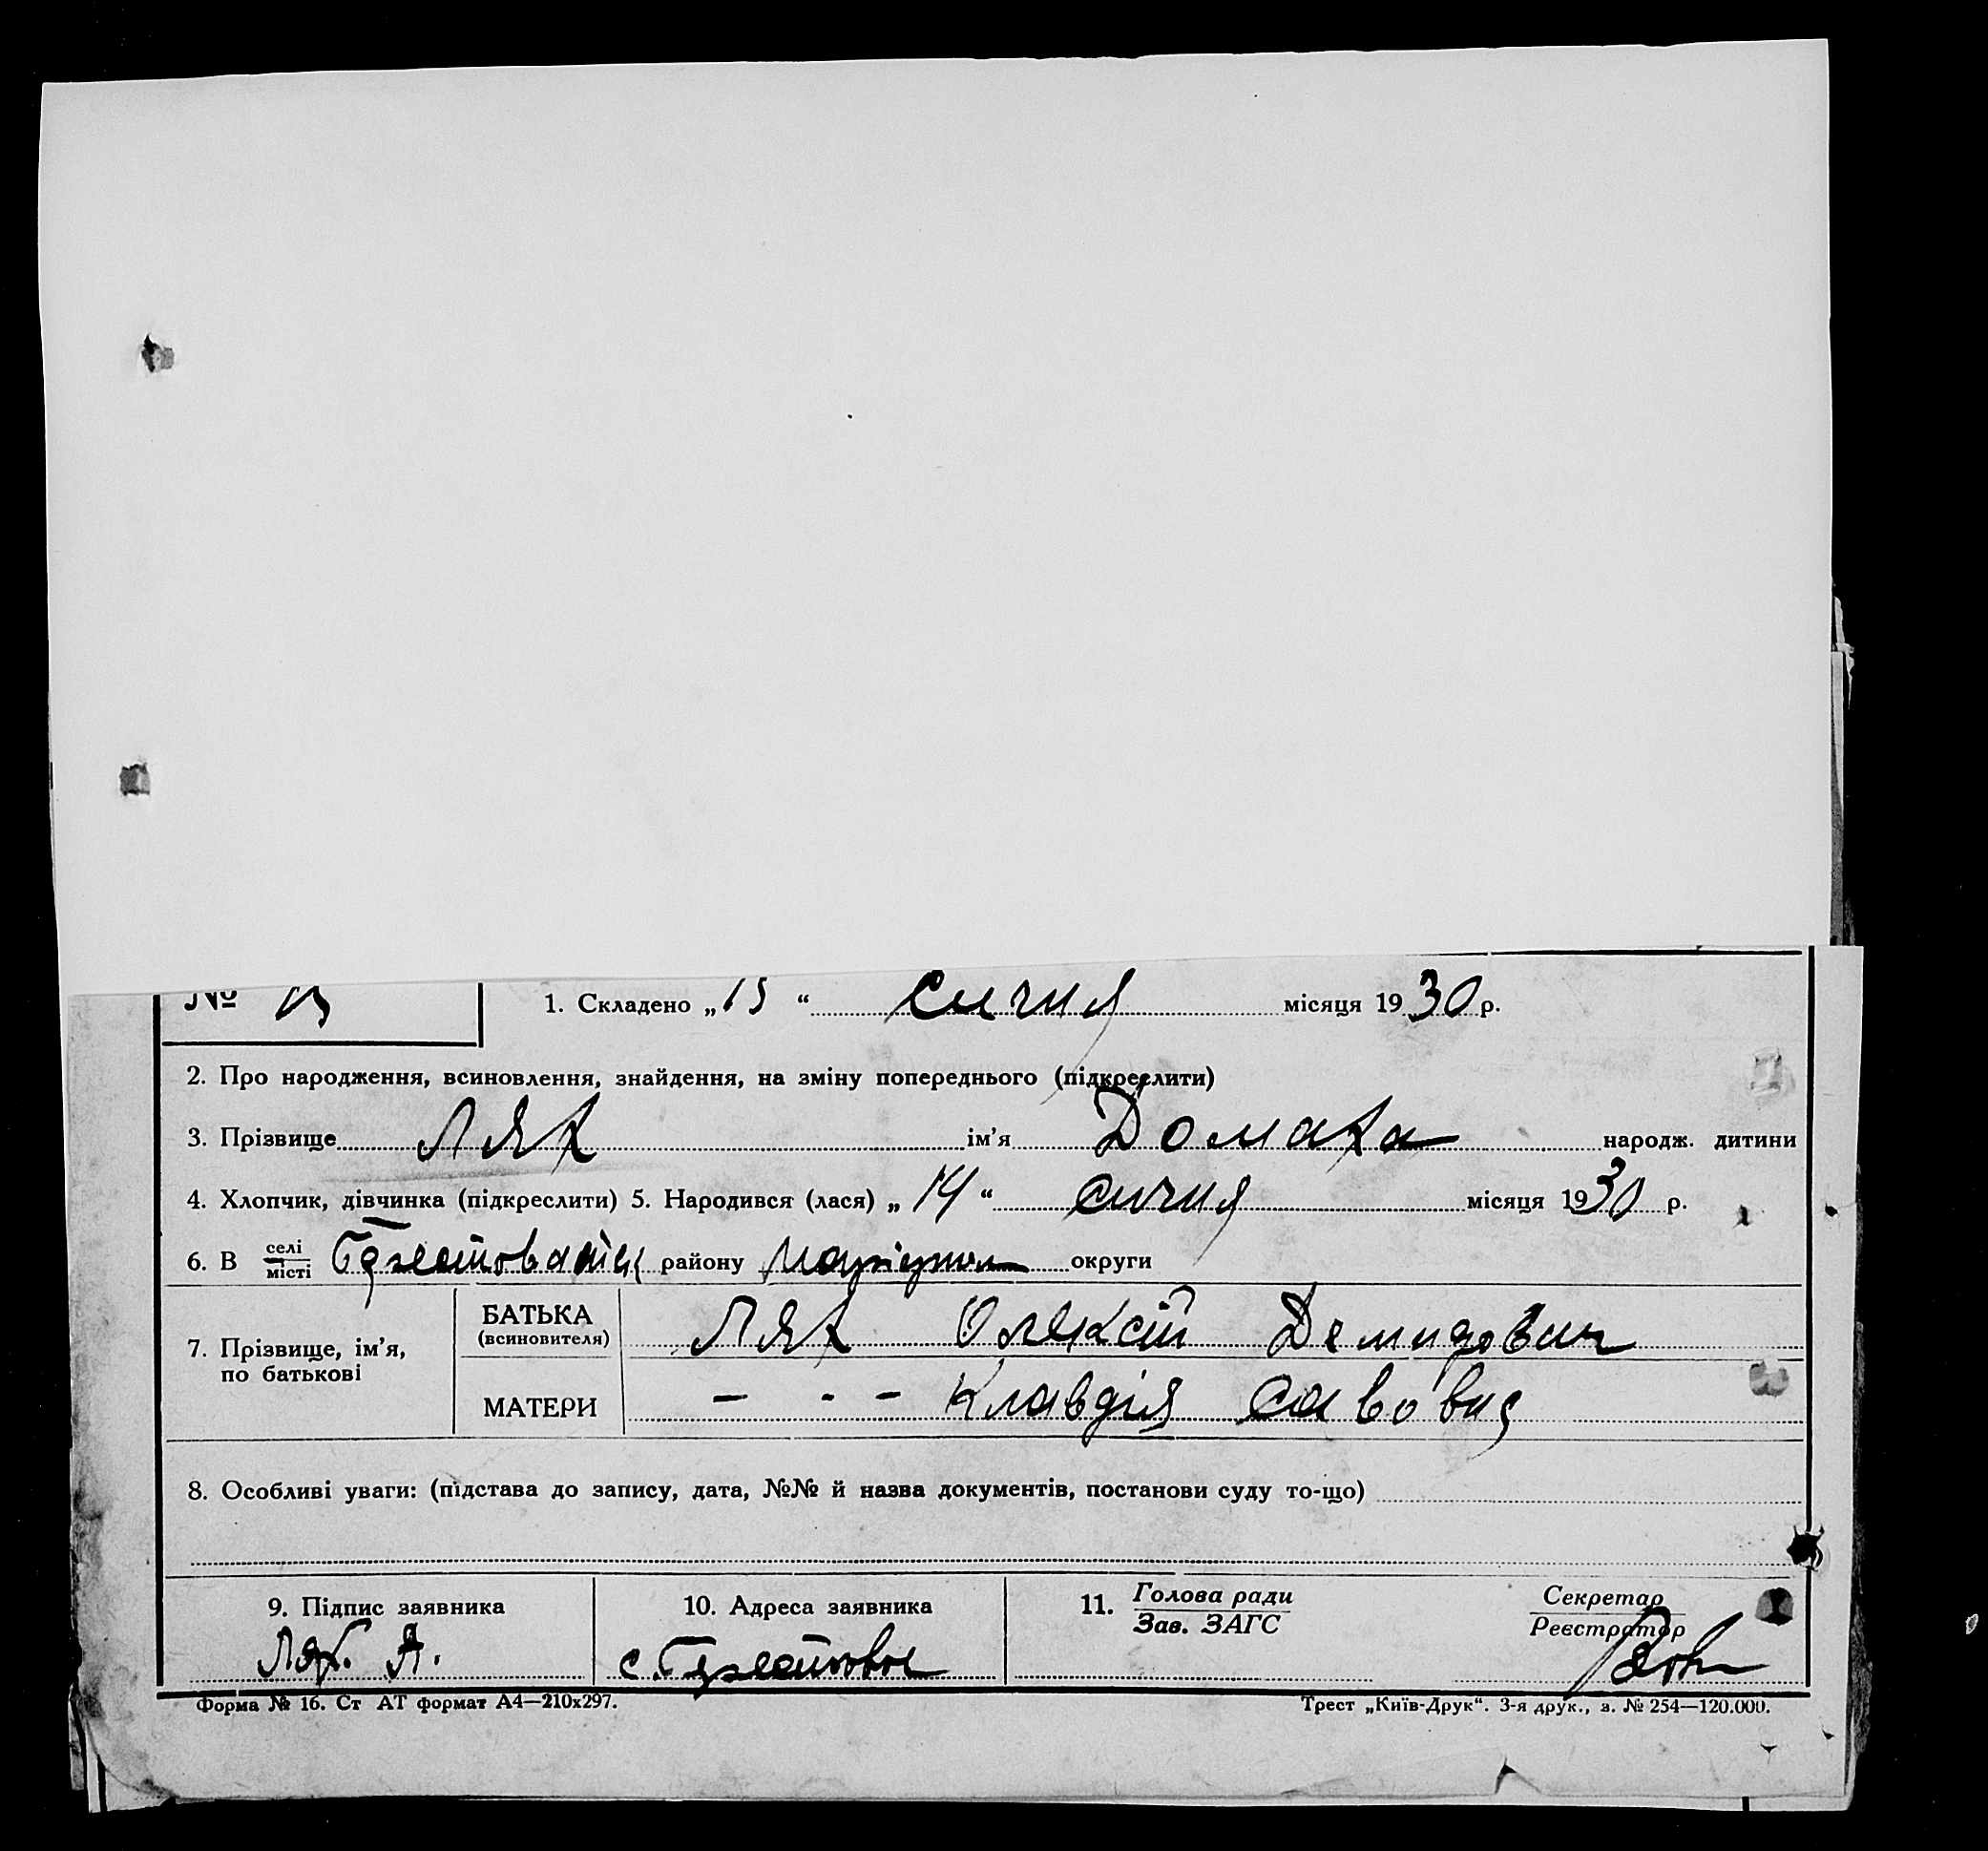 № 15 1. Складено „15“ січня місяця 1930 р.
2. Про народження, всиновлення, знайдення, на зміну попереднього (підкреслити)
3. Прізвище Лях ім’я Домаха народж. дитини
4. Хлопчик, дівчинка (підкреслити) 5. Народився (лася) „14“ сичня місяця 1930 р.
6. В селі
місті району округи
7. Прізвище, ім’я,
по батькові
БАТЬКА
(всиновителя)
Лях Олексій Демидович
МАТЕРИ
— - — Клавдія Савовна
8. Особливі уваги: (підстава до запису, дата, №№ й назва документів, постанови суду то-що)
9. Підпис заявника
Лях. А.
10. Адреса заявника
с.
11. Голова ради
Зав. ЗАГС
Секретар
Реєстратор
Форма № 16. Ст АТ формат А4—210х297.
Трест „Київ-Друк“. 3-я друк., з. № 254—120.000.